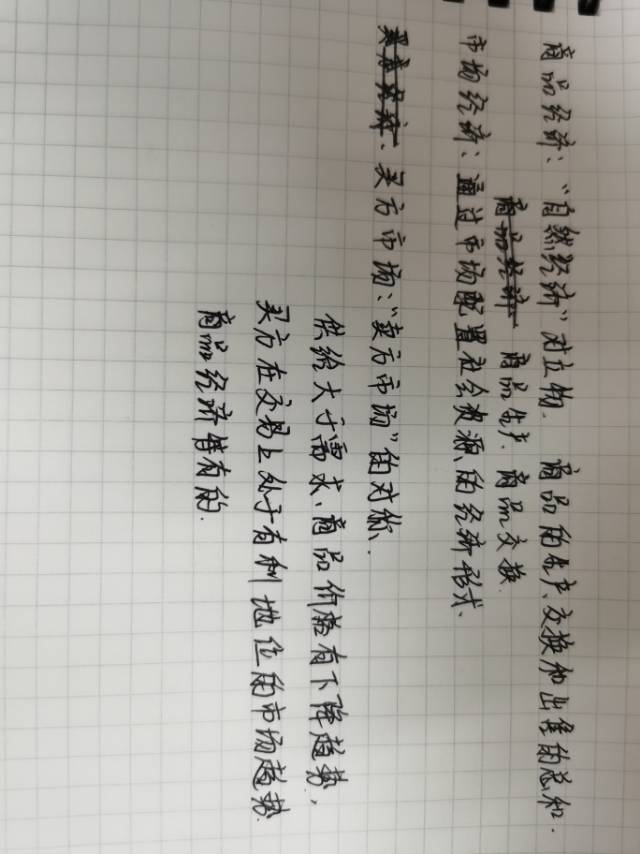 商品经济："自然经济"对立物. 商品的生产、交换和出售的总和.
商品生产. 商品交换.
市场经济：通过市场配置社会资源的经济形式.
买方市场："卖方市场"的对称.
供给大于需求、商品价格有下降趋势，
买方在交易上处于有利地位的市场趋势
商品经济特有的.